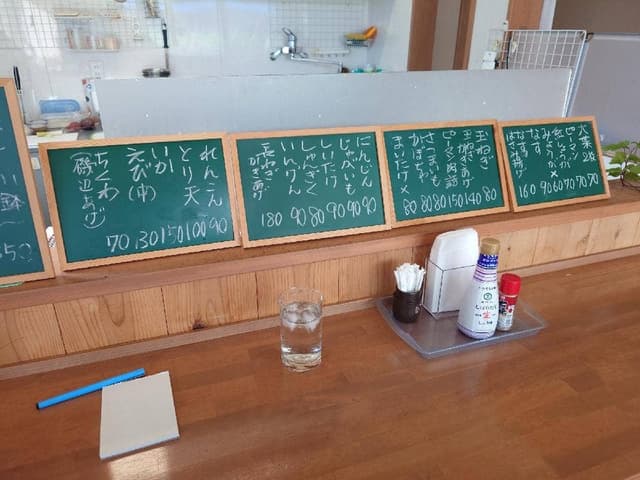 れんこん 90
とり天 100
いか 150
えび(中) 130
ちくわ 70
(磯辺あげ)
にんじん 90
じゃがいも 90
しいたけ 90
しゅんぎく 80
いんげん 90
長ねぎ 180
かきあげ
玉ねぎ 80
玉ねぎかきあげ 140
ピーマン肉詰 150
さつまいも 80
かぼちゃ 80
まいたけ× 80
大葉2枚 70
ピーマン 70
紅しょうが 70
みょうが× 60
なす 90
なす 160
はさみ揚げ